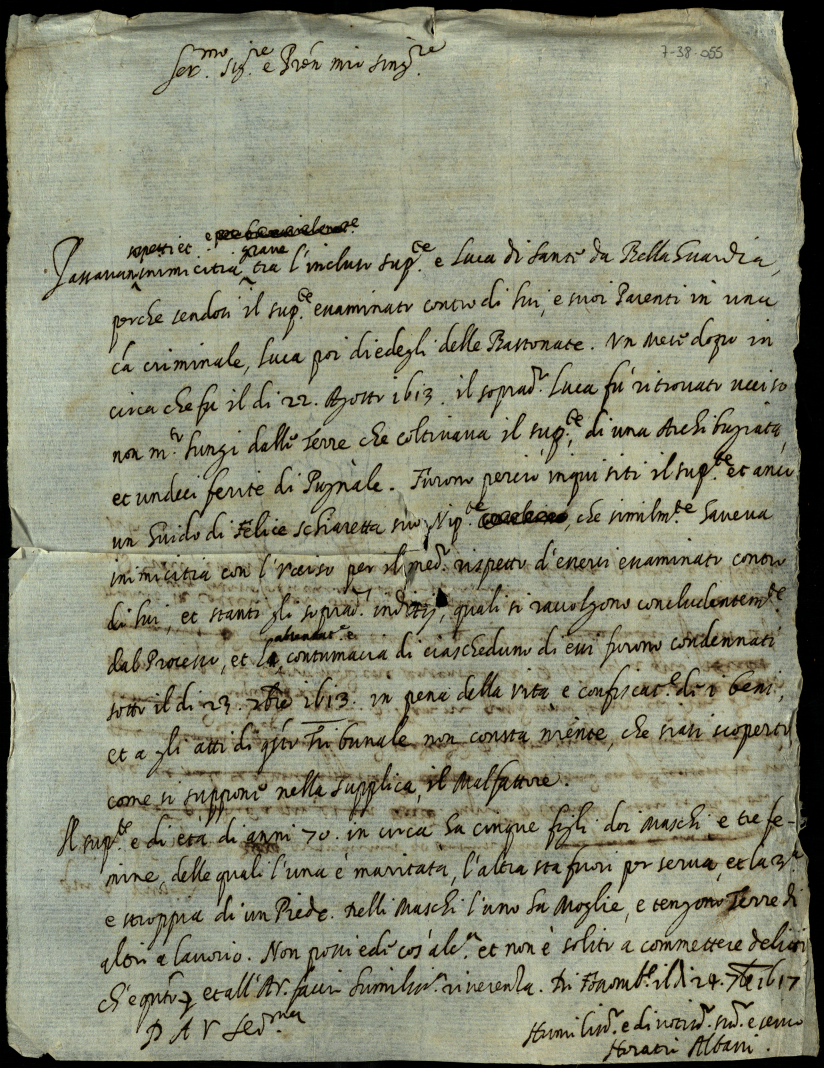 7-38-055
Ser.mo Sig.re e Pren mio sing.re
sospetti et e
grave
Passavan inimicitia tra l'incluso sup.te e Luca di Santi da Bella Guardia,
perche sendosi il sup.te esaminato contro di lui, e suoi Parenti in una
cã criminale, Luca poi diedegli delle Bastonate. Un mese dopo in
circa che fu il di 22. Agosto 1613. il soprad.o Luca fù ritrovato ucciso
non m.to lungi dalle Terre che coltivava il sup.te, di una Archibugiata,
et undeci ferite di Pugnale. Furono perciò inquisiti il sup.te et anco
un Guido di Felice Schiaretta suo Nip.te, che similm.te haveva
inimicitia con l'ucciso per il med.o rispetto d'essersi esaminato contro
di lui, et stanti gli soprad.i inditij, quali si raccolgono concludentem.te
absentat.e
dal Processo, et la contumacia di ciascheduno di essi furono condennati
sotto il di 23. 1613. in pena della vita e confiscat.e de i beni,
et a gli atti di q.sto Tribunale non consta niente, che siasi scoperto
come si suppone nella supplica, il Malfattore.
Il sup.te e di età di anni 70. in circa ha cinque figli doi Maschi e tre fe-
mine, delle quali l'una è maritata, l'altra sta fuori per serva, et la 3.a
e stroppia di un Piede. Delli Maschi l'uno ha Moglie, e tengono Terre di
altri a lavorio. Non possiede cos'alc.a et non è solito a commettere delitti
ch'e q.nto et all'A.V. facci humiliss.a riverenza. Di Fossomb.e il di 24. 7bre 1617
D A V Ser.ma
Humiliss.o e divotiss.o sud.o e servo
Horatio Albani.